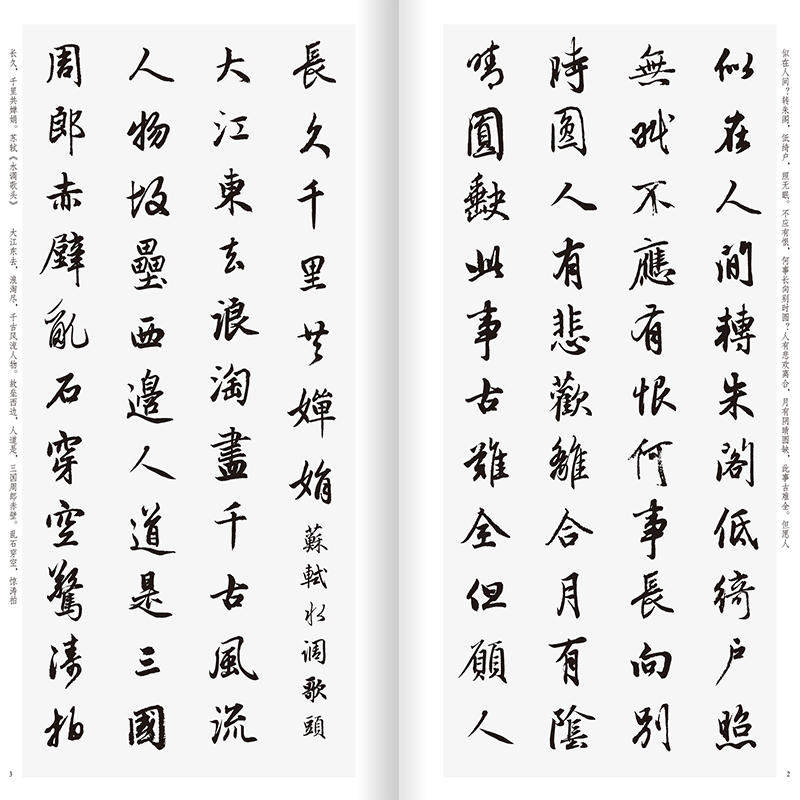 似在人间？转朱阁，低绮户，照无眠。不应有恨，何事长向别时圆？人有悲欢离合，月有阴晴圆缺，此事古难全。但愿人
似在人間轉朱閣低綺户照
無眠不應有恨何事長向別
時圓人有悲歡離合月有陰
晴圓缺此事古難全但願人
2
長久千里共嬋娟 蘇軾水調歌頭
大江東去浪淘盡千古風流
人物故壘西邊人道是三國
周郎赤壁亂石穿空驚濤拍
长久，千里共婵娟。苏轼《水调歌头》 大江东去，浪淘尽，千古风流人物。故垒西边，人道是，三国周郎赤壁。乱石穿空，惊涛拍
3